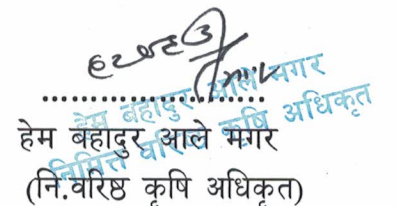 हेम बहादुर आले मगर
निमित्त वरिष्ठ कृषि अधिकृत
....................................
हेम बहादुर आले मगर
(नि.वरिष्ठ कृषि अधिकृत)